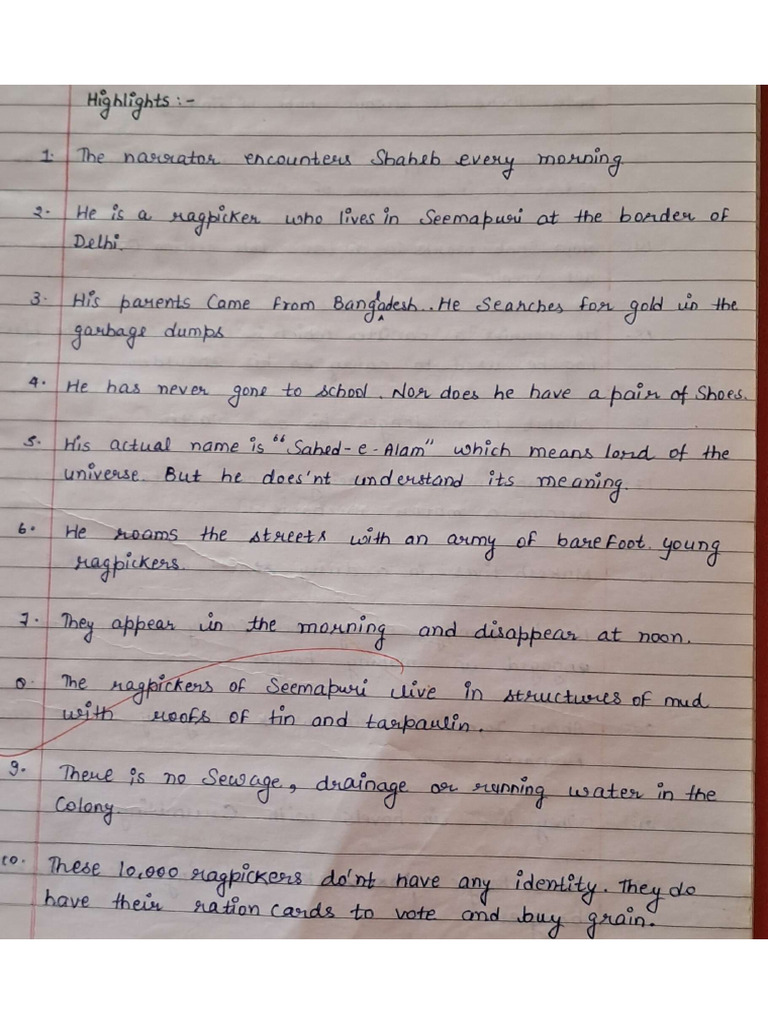 Highlights :-
1. The narrator encounters Shaheb every morning
2. He is a ragpicker who lives in Seemapuri at the border of
Delhi.
3. His parents Came from Bangladesh.. He Searches for gold in the
garbage dumps
4. He has never gone to school. Nor does he have a pair of Shoes.
5. His actual name is "Sahed-e-Alam" which means lord of the
universe. But he does'nt understand its meaning.
6. He roams the streets with an army of barefoot. young
ragpickers.
7. They appear in the morning and disappear at noon.
8. The ragpickers of Seemapuri live in structures of mud
with roofs of tin and tarpaulin.
9. There is no Sewage, drainage or running water in the
Colony.
10. These 10,000 ragpickers do'nt have any identity. They do
have their ration cards to vote and buy grain.